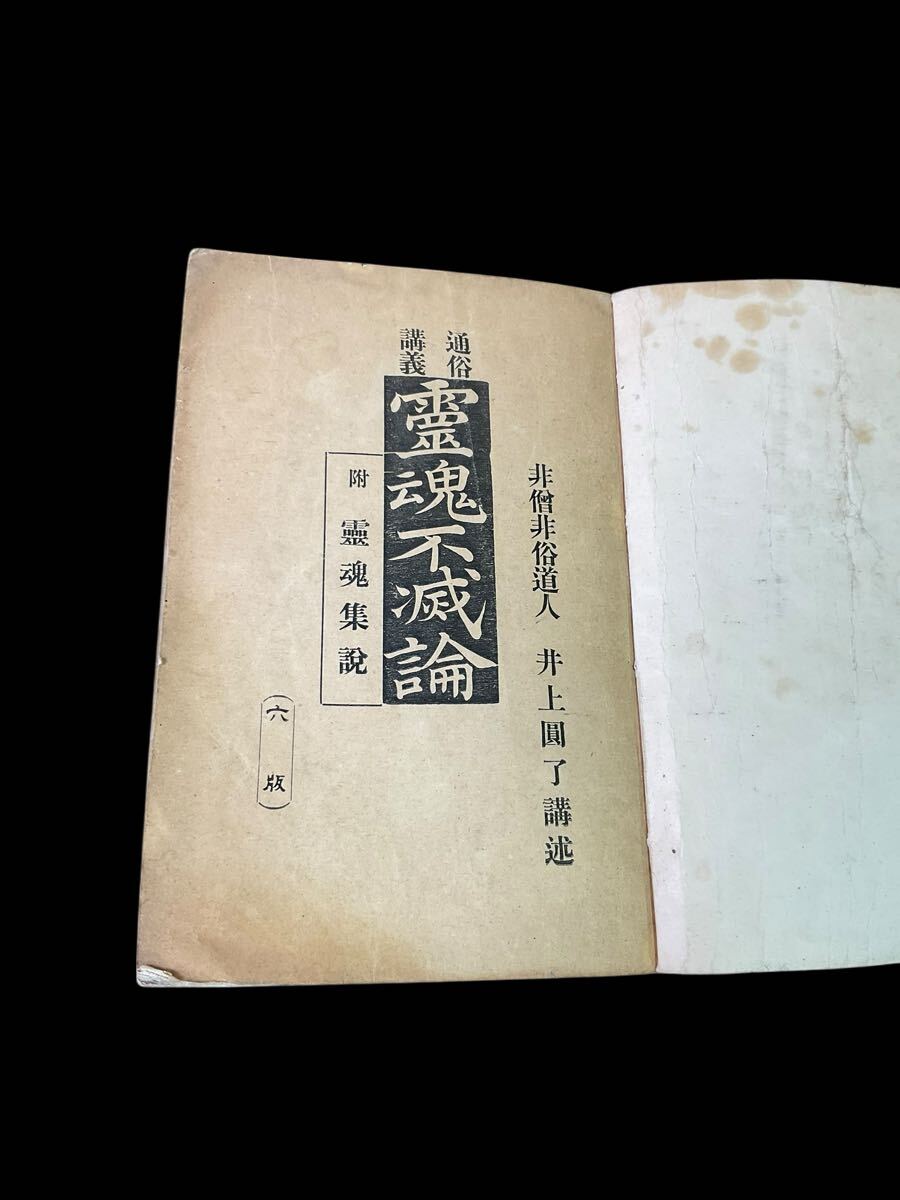 非僧非俗道人 井上圓了講述
通俗
講義
靈魂不滅論
附 靈魂集說
六版